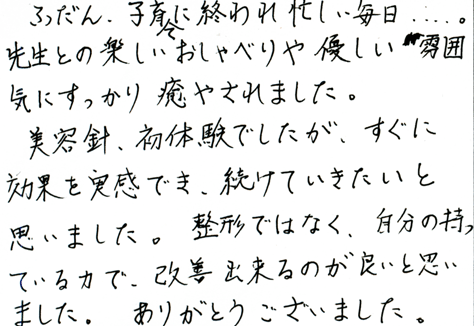 ふだん、子育てに終われ忙しい毎日.....。
先生との楽しいおしゃべりや優しい雰囲
気にすっかり癒やされました。
美容針、初体験でしたが、すぐに
効果を実感でき、続けていきたいと
思いました。整形ではなく、自分の持っ
ている力で、改善出来るのが良いと思い
ました。ありがとうございました。